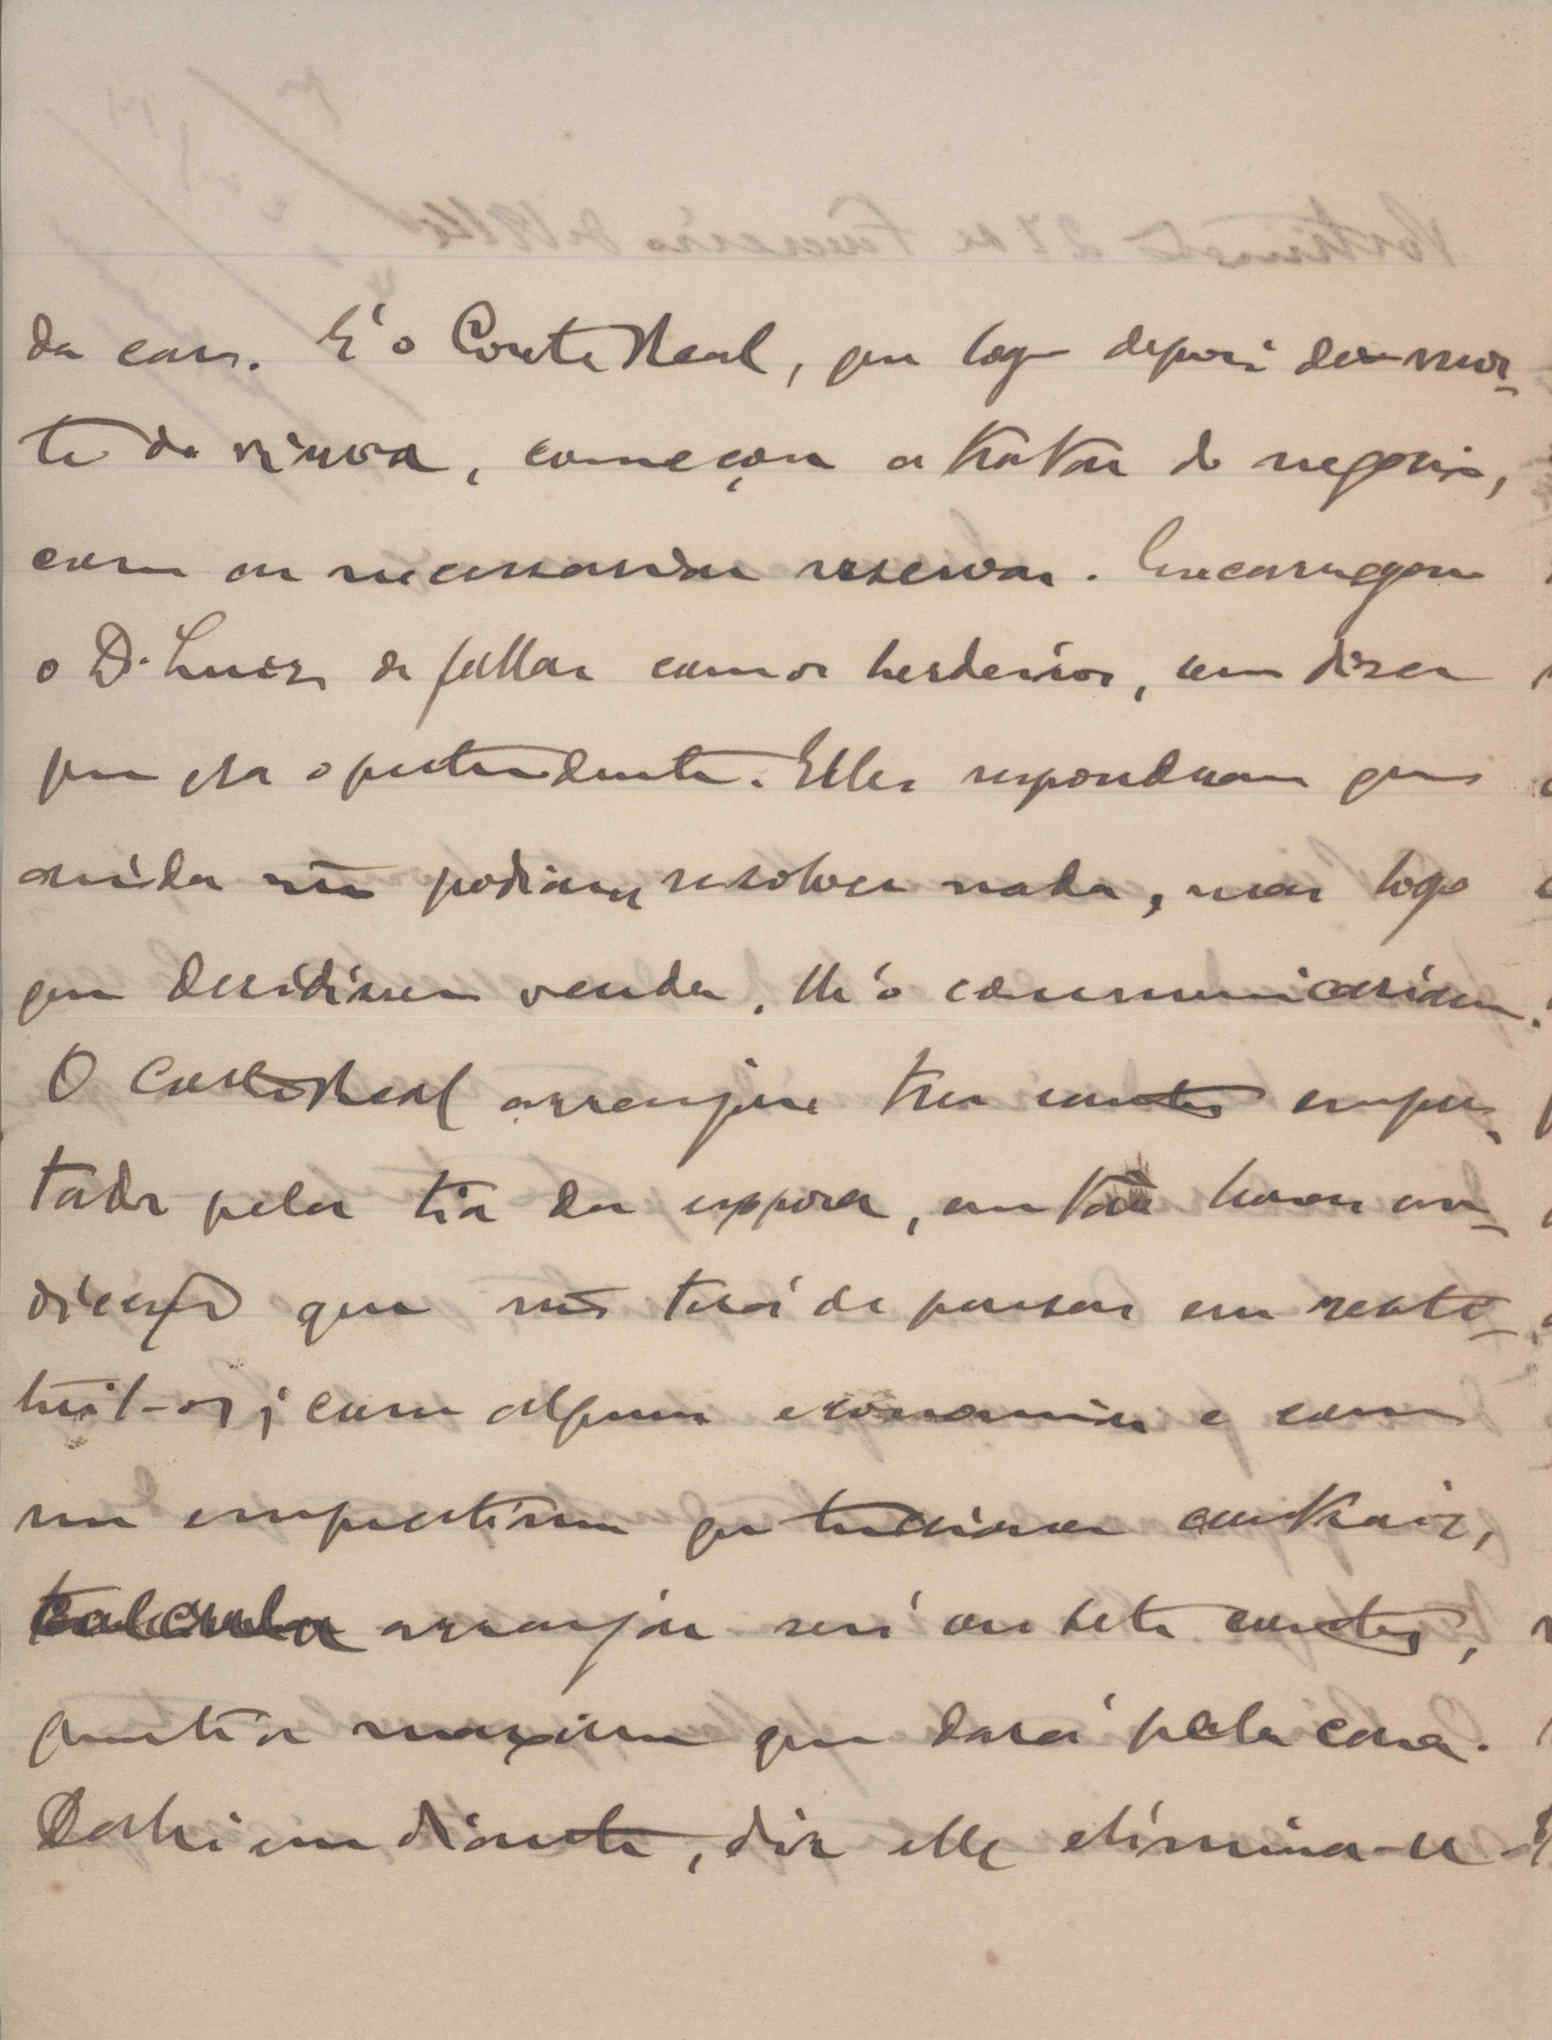 da casa. É o Corte Real, que logo depois da mor-
te da viuva, começou a tratar do negocio,
com as necessarias reservas. Encarregou
o D. Luiz de fallar com os herdeiros, sem dizer
quem era o pretendente. Elles responderam que
ainda não podiam resolver nada, mas logo
que decidissem vender, lh'o communicariam.
O Corte Real arranjou tres contos empres-
tados pela tia da esposa, em taes boas con-
dicções que não terá de pensar em resti-
tuil-os; com alguma economia e com
um emprestimo que tenciona contrair,
calcula arranjar seis ou sete contos,
quantia maxima que dará pela casa.
Dahi em diante, diz elle elimina-se